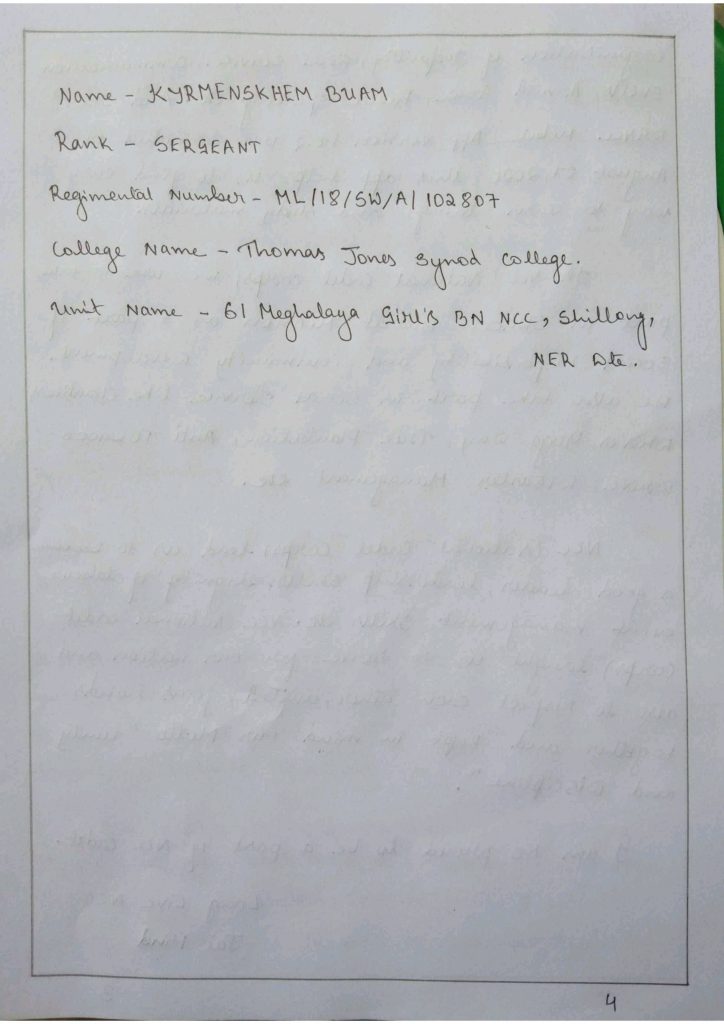 Name - KYRMENSKHEM BUAM
Rank - SERGEANT
Regimental Number - ML/18/SW/A/102807
College Name - Thomas Jones Synod College.
Unit Name - 61 Meghalaya Girl's BN NCC, Shillong,
NER Dte.
4